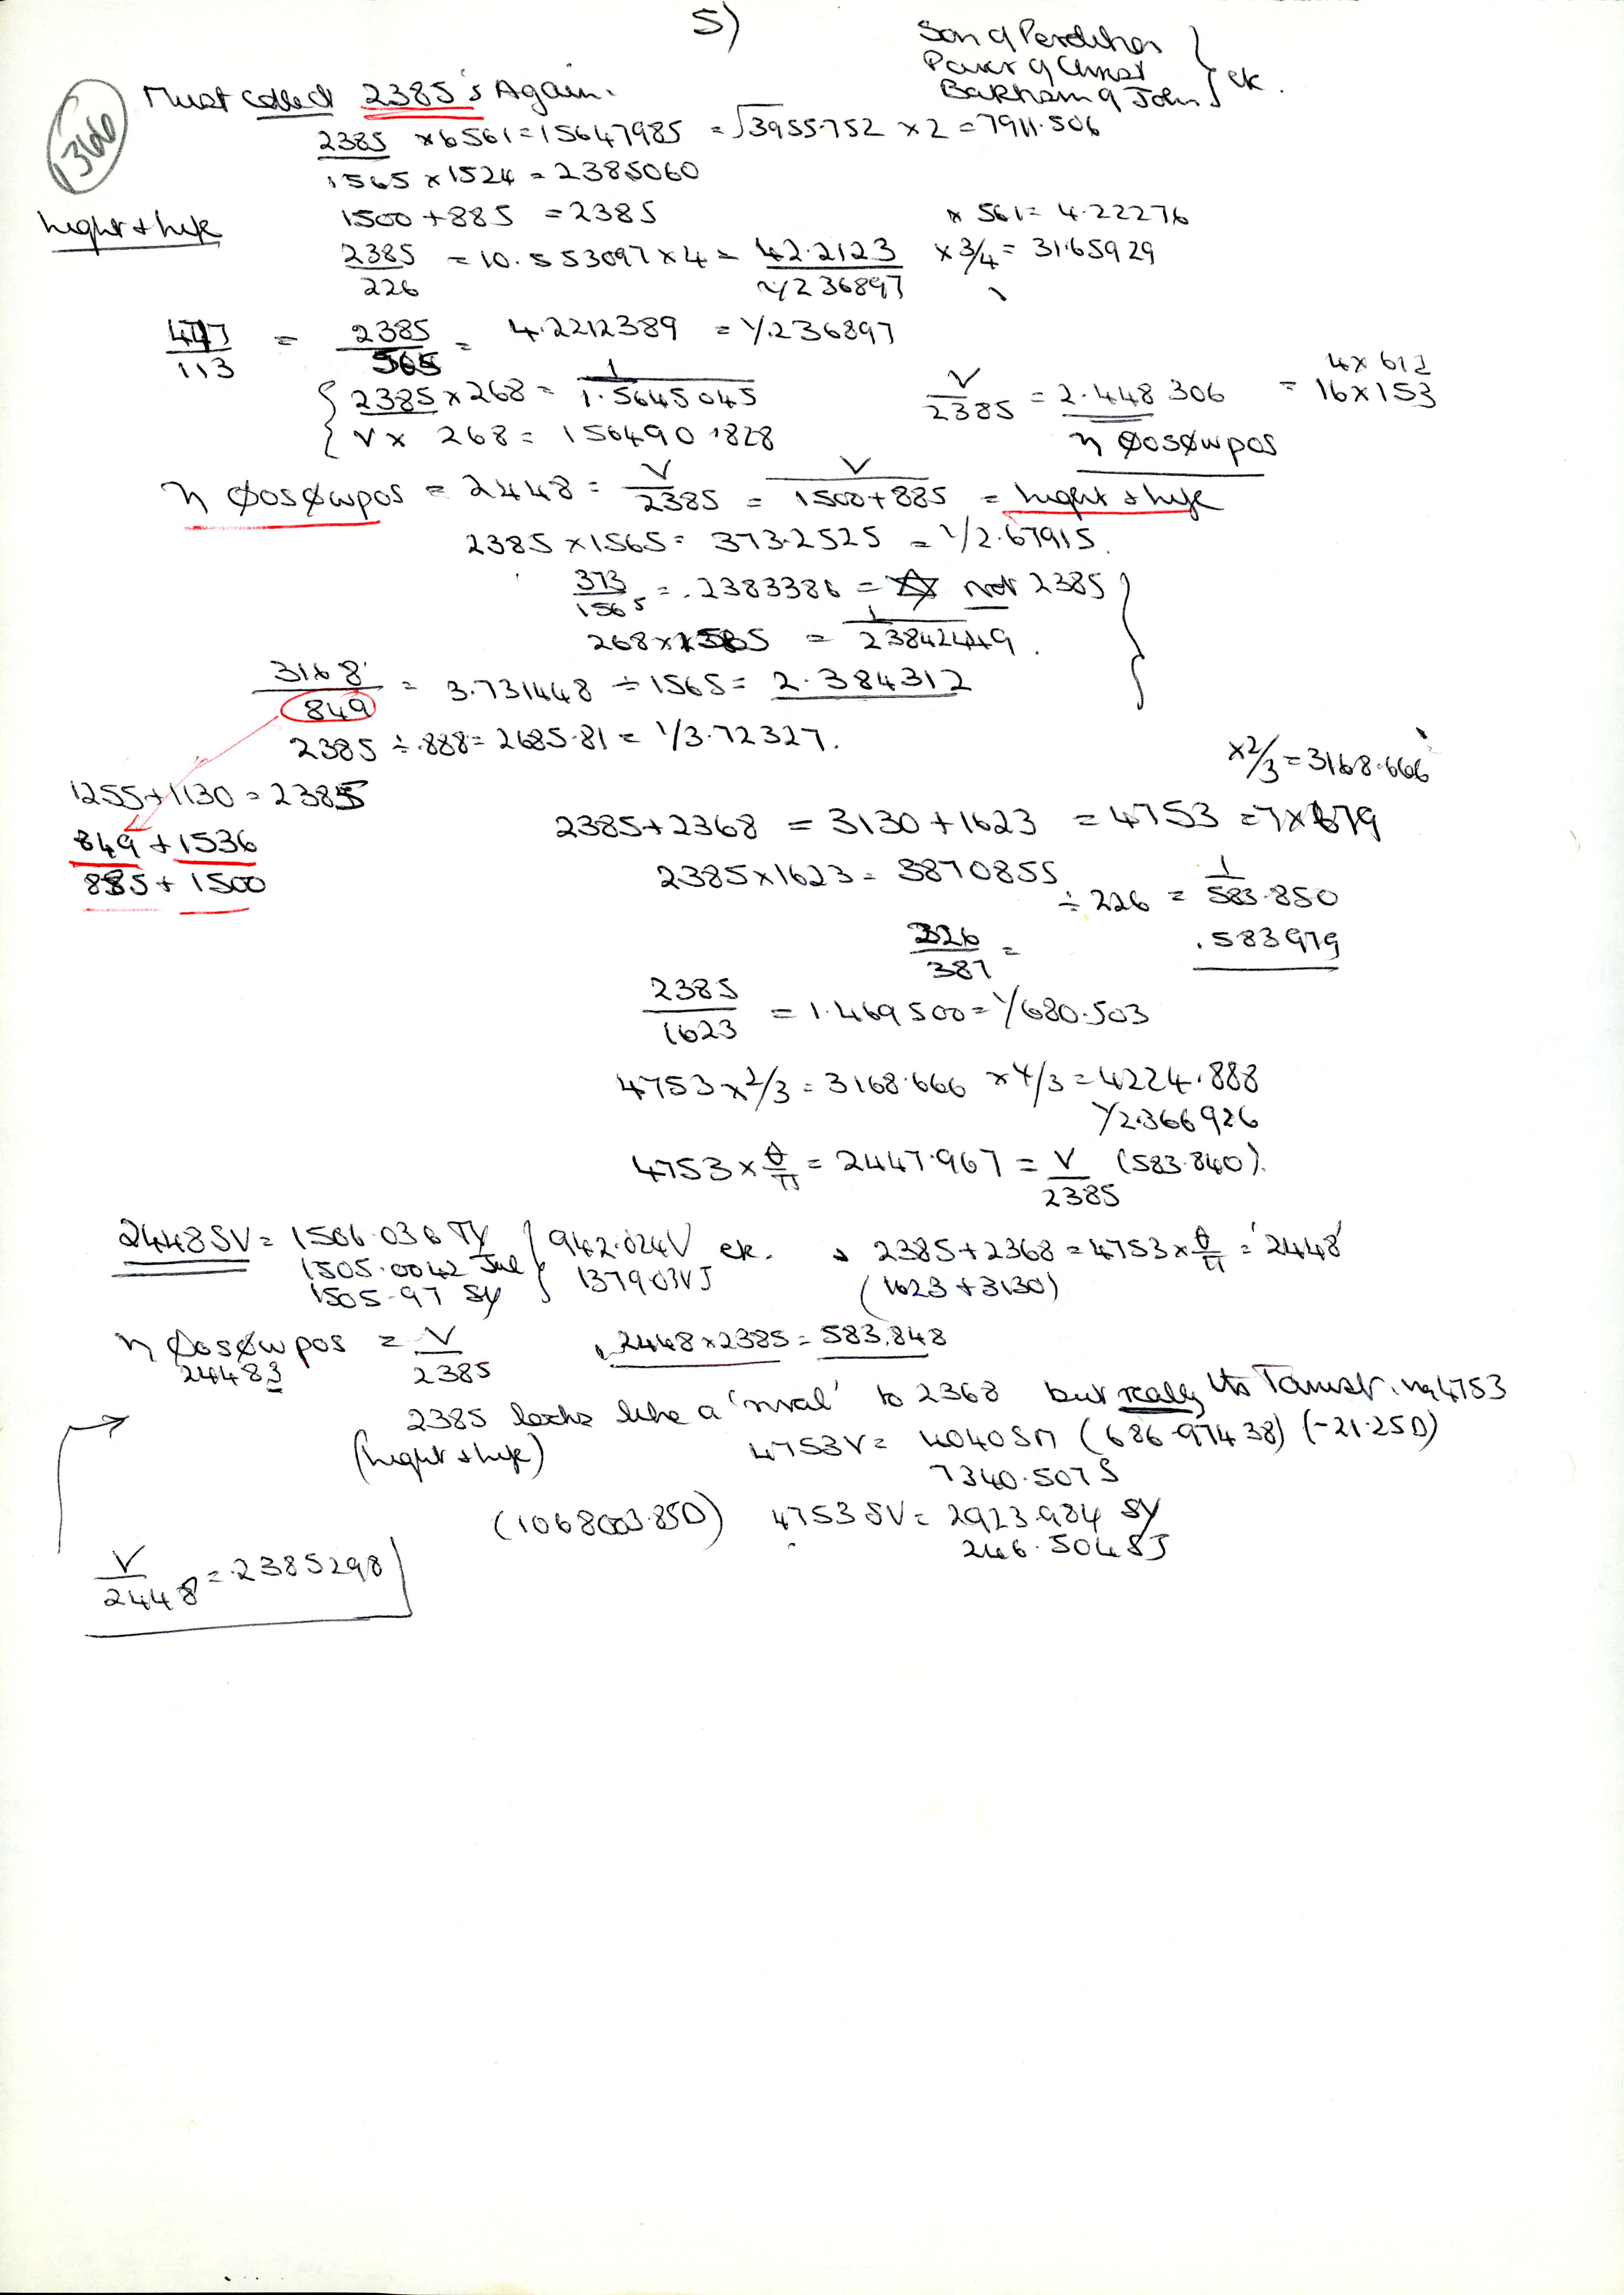 5)
Son of Perdition
Power of Christ
Baptism of John } etc.
1366
Must collect 2385's Again.
2385 × 6561 = 15647985 = √3955.752 × 2 = 7911.506
1565 × 1524 = 2385060
light & life
1500 + 885 = 2385
× 561 = 4.22276
2385/226 = 10.553097 × 4 = 42.2123 × 3/4 = 31.65929
1/236897
477/113 = 2385/565 = 4.2212389 = 1/.236897
2385 × 268 = 1/1.5645045
V × 268 = 1564901828
V/2385 = 2.448306 = 16×153
4 × 612
η φοσφωρος
η φοσφωρος = 2448 = V/2385 = V/1500+885 = light & life
2385 × 1565 = 373.2525 = 1/2.67915.
373/1565 = .2383386 = ✡ not 2385
268 × 1565 = 1/23842449.
3168/849 = 3.731448 ÷ 1565 = 2.384312
2385 ÷ .888 = 2685.81 = 1/3.72327.
×2/3 = 3168.666
1255 + 1130 = 2385
849 + 1536
885 + 1500
2385 + 2368 = 3130 + 1623 = 4753 = 7×679
2385 × 1623 = 3870855 ÷ 226 = 1/583.850
226/387 = .583979
2385/1623 = 1.469500 = 1/680.503
4753 × 2/3 = 3168.666 × 4/3 = 4224.888
1/2.366926
4753 × θ/π = 2447.967 = V/2385 (583.840).
2448 SV = 1506.036 TY } 942.024V etc.
1505.0042 Jul } 1379.03VJ
1505.97 SY
& 2385 + 2368 = 4753 × θ/π = '2448'
(1623 + 3130)
η φοσφωρος = V/2385
24483
.2448 × 2385 = 583.848
2385 looks like a 'rival' to 2368 but really its Taurist. via 4753
(light & life)
4753V = 4040SM (686.97438) (-21.25D)
7340.507 S
(1068003.85D) 4753 SV = 2923.984 SY
246.5048J
V/2448 = .2385298